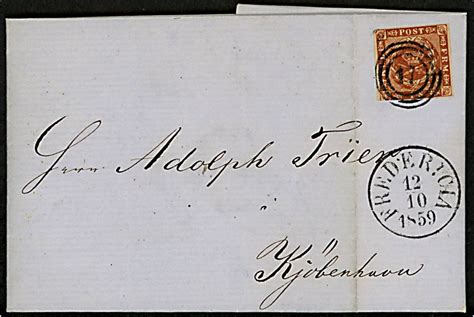 POST
FRM
17
Herrn Adolph Trier
FREDERICIA
12
10
1859
Kjöbenhavn